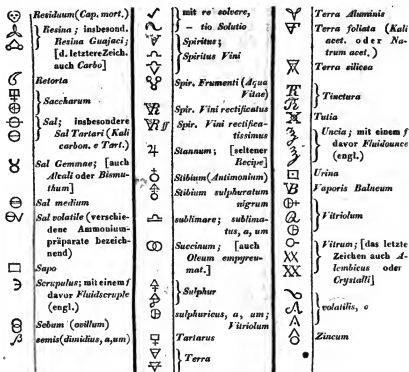 Residuum (Cap. mort.)
Resina; insbesond.
Resina Guajaci;
[d. letztere Zeich.
auch Carbo]
Retorta
Saccharum
Sal; insbesondere
Sal Tartari (Kali
carbon. e Tart.)
Sal Gemmae; [auch
Alcali oder Bismu-
thum]
Sal medium
Sal volatile (verschie-
dene Ammonium-
präparate bezeich-
nend)
Sapo
Scrupulus; mit einem f
davor Fluidscruple
(engl.)
Sebum (ovillum)
semis (dimidius, a, um)
mit re solvere,
- tio Solutio
Spiritus;
Spiritus Vini
Spir. Frumenti (Aqua
Vitae)
Spir. Vini rectificatus
Spir. Vini rectifica-
tissimus
Stannum; [seltener
Recipe]
Stibium (Antimonium)
Stibium sulphuratum
nigrum
sublimare; sublima-
tus, a, um
Succinum; [auch
Oleum empyreu-
mat.]
Sulphur
sulphuricus, a, um;
Vitriolum
Tartarus
Terra
Terra Aluminis
Terra foliata (Kali
acet. oder Na-
trum acet.)
Terra silicea
Tinctura
Tutia
Uncia; mit einem f
davor Fluidounce
(engl.)
Urina
Vaporis Balneum
Vitriolum
Vitrum; [das letzte
Zeichen auch A-
lembicus oder
Crystalli]
volatilis, e
Zincum